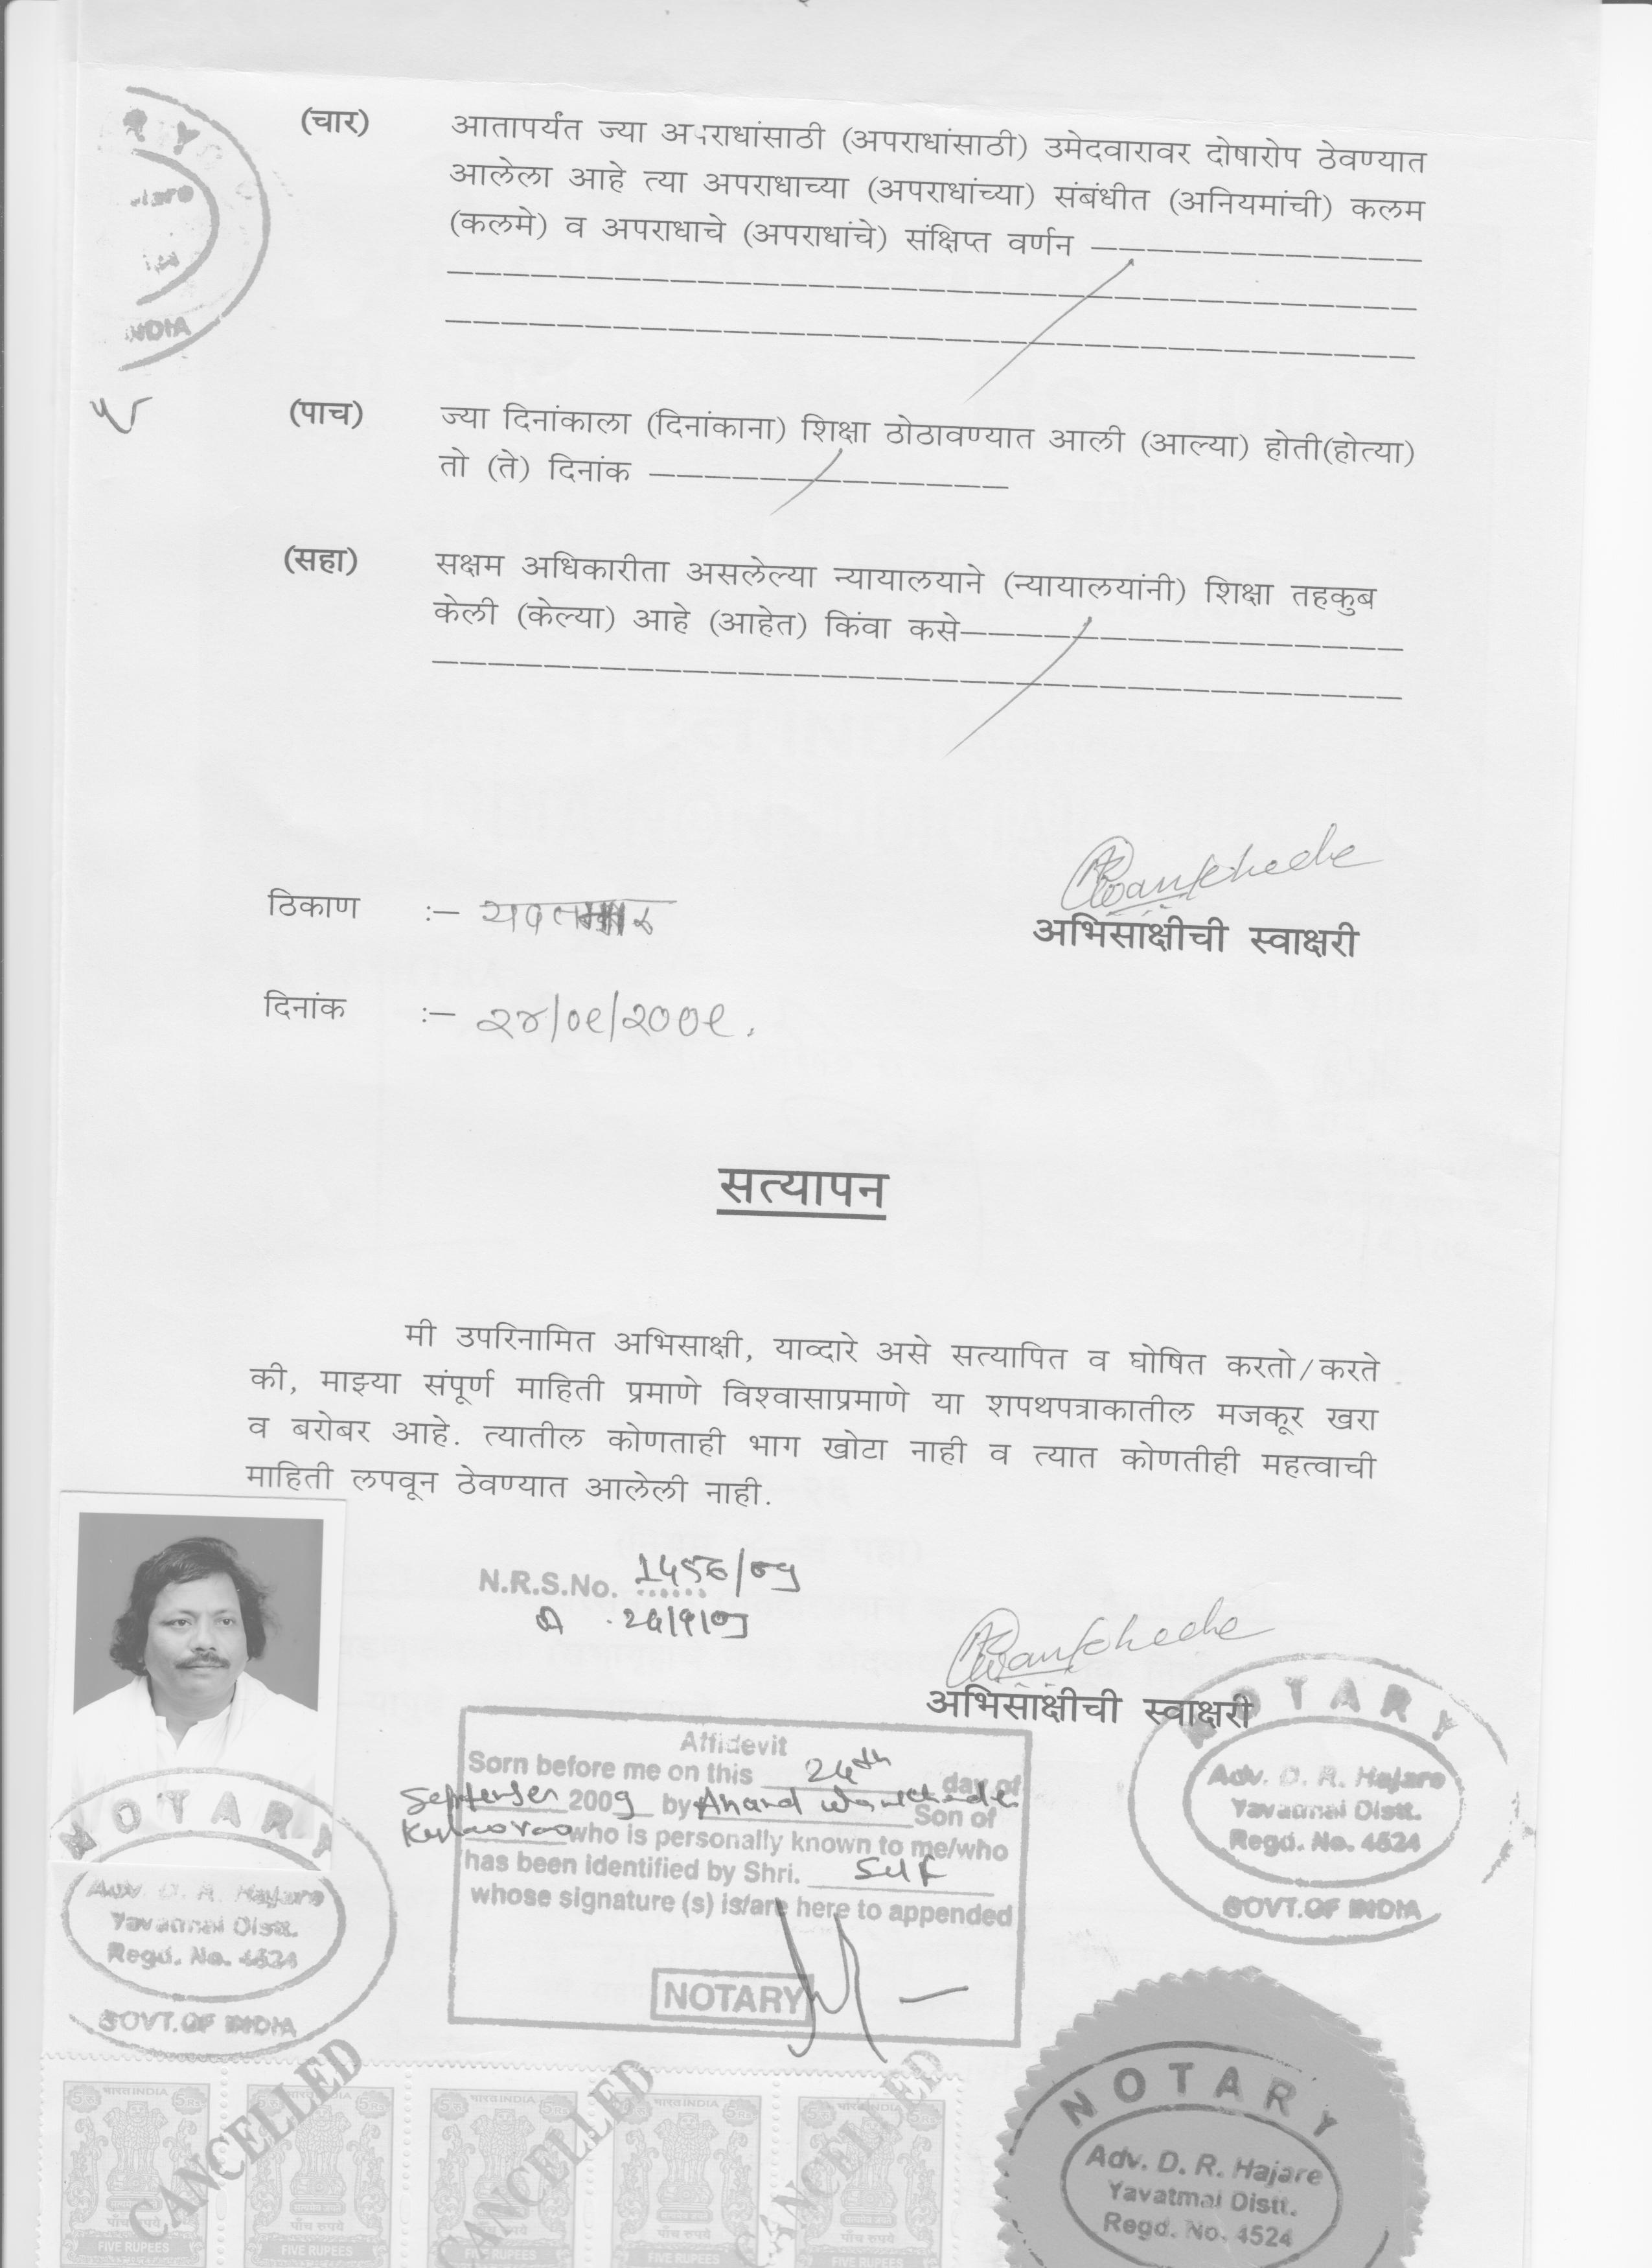 (चार) आतापर्यंत ज्या अपराधांसाठी (अपराधांसाठी) उमेदवारावर दोषारोप ठेवण्यात
आलेला आहे त्या अपराधाच्या (अपराधांच्या) संबंधीत (अनियमांची) कलम
(कलमे) व अपराधाचे (अपराधांचे) संक्षिप्त वर्णन ————————————
———————————————————————————————————
———————————————————————————————————
NDIA
(पाच) ज्या दिनांकाला (दिनांकाना) शिक्षा ठोठावण्यात आली (आल्या) होती(होत्या)
तो (ते) दिनांक —————————————
(सहा) सक्षम अधिकारीता असलेल्या न्यायालयाने (न्यायालयांनी) शिक्षा तहकुब
केली (केल्या) आहे (आहेत) किंवा कसे————————————————
———————————————————————————————————
Rwankhede
ठिकाण :— यवतमाळ
अभिसाक्षीची स्वाक्षरी
दिनांक :— २४/०९/२००९.
सत्यापन
मी उपरिनामित अभिसाक्षी, याव्दारे असे सत्यापित व घोषित करतो/करते
की, माझ्या संपूर्ण माहिती प्रमाणे विश्वासाप्रमाणे या शपथपत्राकातील मजकूर खरा
व बरोबर आहे. त्यातील कोणताही भाग खोटा नाही व त्यात कोणतीही महत्वाची
माहिती लपवून ठेवण्यात आलेली नाही.
N.R.S.No. 1456/09
24/9/09
Rwankhede
अभिसाक्षीची स्वाक्षरी
Affidevit
Sorn before me on this 24th day of
September 2009 by Anand Wankhade Son of
who is personally known to me/who
has been identified by Shri. Self
whose signature (s) is/are here to appended
NOTARY
NOTARY
Adv. D. R. Hajare
Yavatmal Distt.
Regd. No. 4524
GOVT.OF INDIA
NOTARY
Adv. D. R. Hajare
Yavatmal Distt.
Regd. No. 4524
GOVT.OF INDIA
भारत INDIA भारत INDIA भारत INDIA भारत INDIA भारत INDIA
CANCELLED CANCELLED CANCELLED
पाँच रुपये पाँच रुपये पाँच रुपये पाँच रुपये पाँच रुपये
FIVE RUPEES FIVE RUPEES FIVE RUPEES FIVE RUPEES FIVE RUPEES
NOTARY
Adv. D. R. Hajare
Yavatmal Distt.
Regd. No. 4524